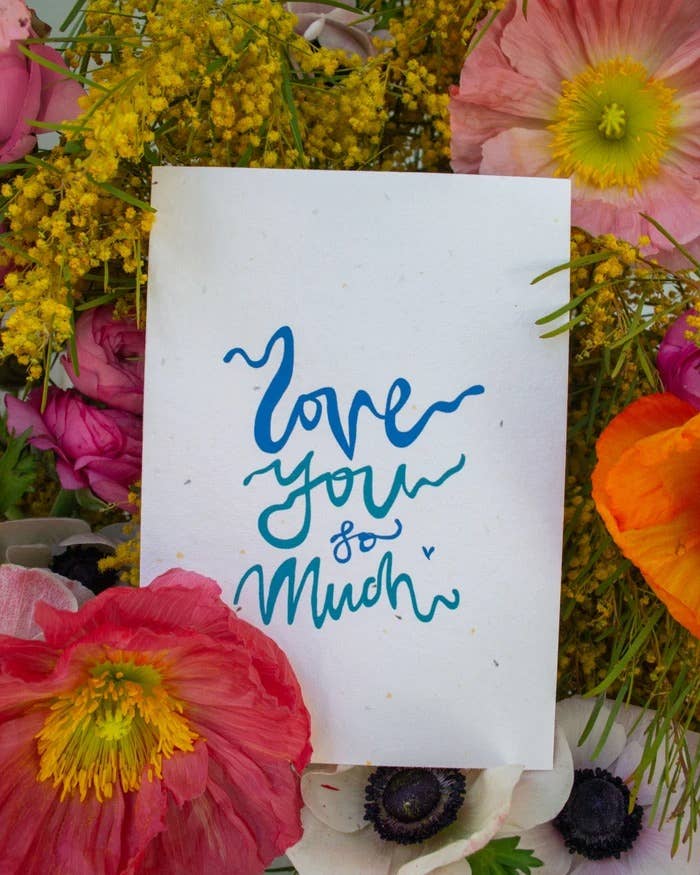 Love
You
so
Much